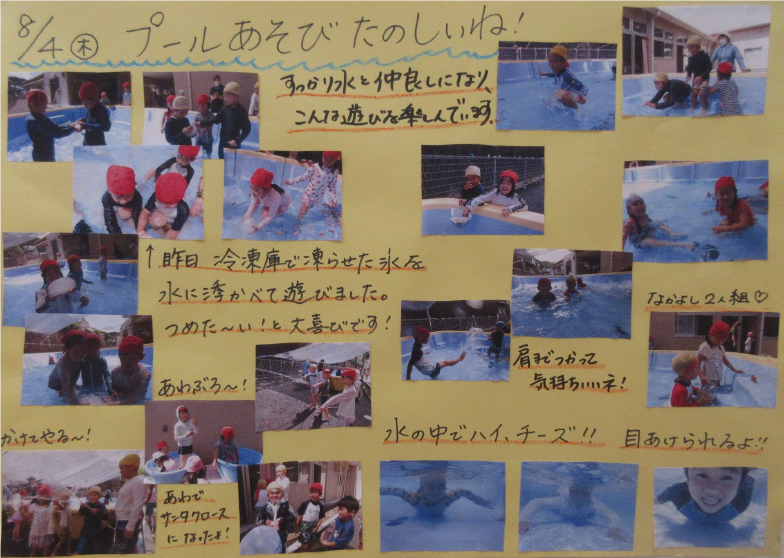 8/4㊍ プールあそびたのしいね!
すっかり水と仲良しになり、
こんな遊びを楽しんでいます。
↑昨日 冷凍庫で凍らせた氷を
水に浮かべて遊びました。
つめた〜い!と大喜びです!
なかよし2人組♡
肩までつかって
気持ちいいネ!
あわぶろ〜!
かけてやる〜!
水の中でハイ、チーズ!!
目あけられるよ!!
あわで
サンタクロース
になったよ!